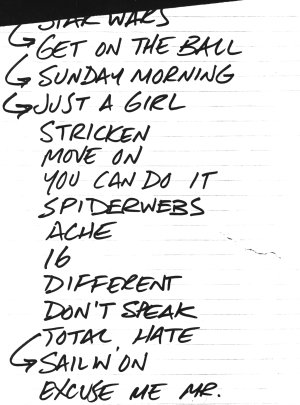 STAR WARS
GET ON THE BALL
SUNDAY MORNING
JUST A GIRL
STRICKEN
MOVE ON
YOU CAN DO IT
SPIDERWEBS
ACHE
16
DIFFERENT
DON'T SPEAK
TOTAL HATE
SAILIN ON
EXCUSE ME MR.